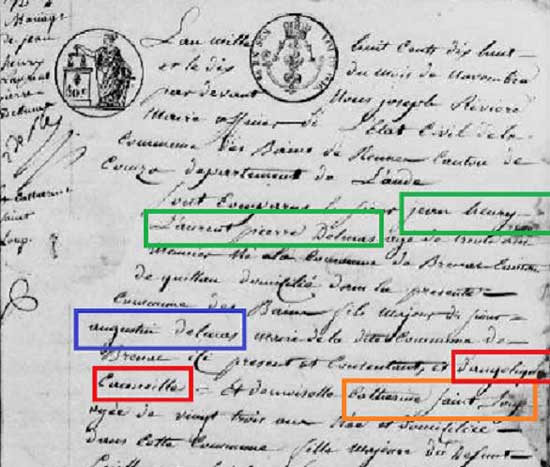 Mariage
de jean
henry
Laurent
pierre
Delmas
et Catherine
Saint
Loup.
L'an mille huit cents dix huit
et le dix du mois de Novembre
par devant Nous joseph Rivière
Maire officier de l'Etat Civil de la
Commune des Bains de Rennes Canton de
Couiza departement de L'aude
sont Comparus le sieur jean henry
Laurent pierre Delmas agé de trente ans
meunier né à la Commune de Brenac Canton
de quillan domicilié dans la presente
Commune des Bains fils majeur de sieur
augustin delmas maire de la dite Commune de
Brenac ici present et Consentant, et d'angelique
Cauneille = Et demoiselle Catherine Saint Loup
agée de vingt trois ans née et domiciliée
dans cette Commune fille majeure du defunt